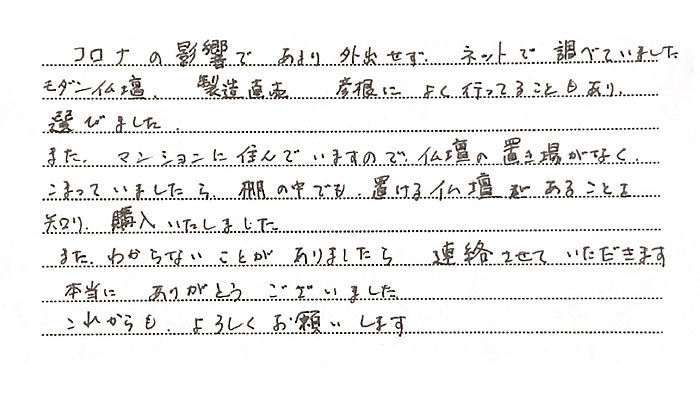 コロナの影響で あまり外出せず、ネットで調べていました
モダン仏壇、製造直売 彦根によく行ってることもあり、
選びました。
また、マンションに住んでいますので、仏壇の置き場がなく、
こまっていましたら、棚の中でも、置ける仏壇があることを
知り、購入いたしました
また、わからないことがありましたら 連絡させていただきます
本当に ありがとうございました
これからも、よろしくお願いします